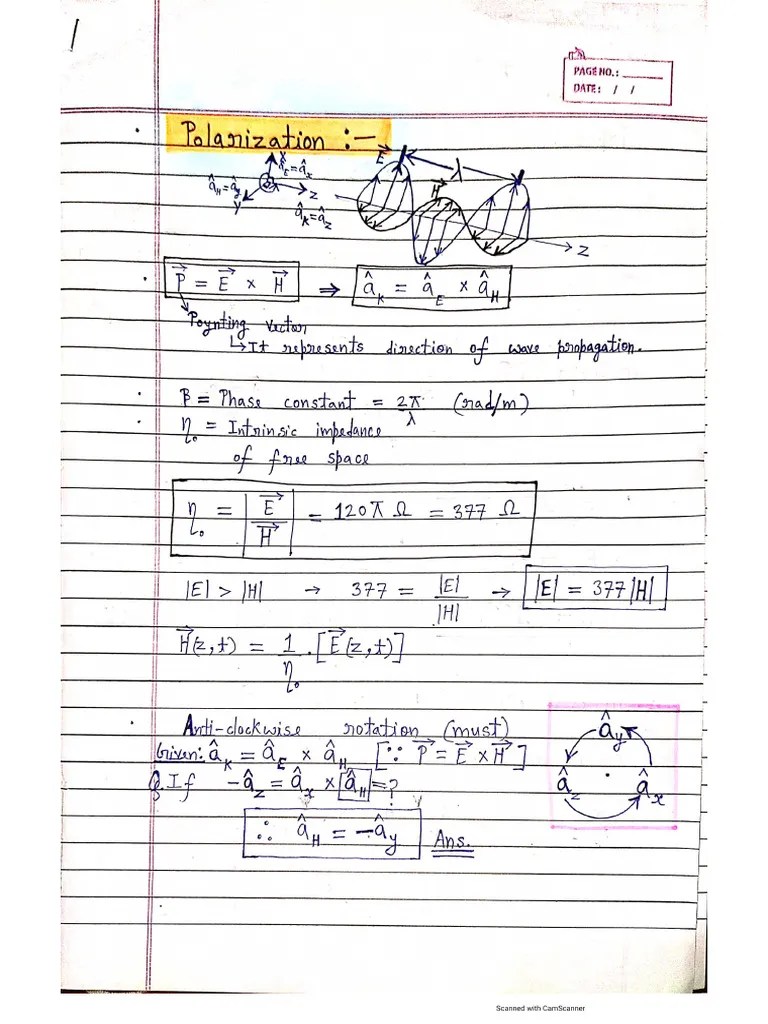 1
PAGE NO.:
DATE: / /
Polarization :-
X
â_E = â_x
â_H = â_y
Y
Z
â_K = â_z
E⃗
λ
H⃗
Z
P⃗ = E⃗ × H⃗ ⇒ â_K = â_E × â_H
Poynting vector
↳ It represents direction of wave propagation.
β = Phase constant = 2π/λ (rad/m)
η₀ = Intrinsic impedance
of free space
η₀ = |E⃗/H⃗| = 120π Ω = 377 Ω
|E| > |H| → 377 = |E|/|H| → |E| = 377|H|
H⃗(z,t) = 1/η₀ . [E⃗(z,t)]
Anti-clockwise rotation (must)
Given: â_K = â_E × â_H [∵ P⃗ = E⃗ × H⃗]
Q. If -â_z = â_x × â_H = ?
∴ â_H = -â_y Ans.
â_y
â_z â_x
Scanned with CamScanner